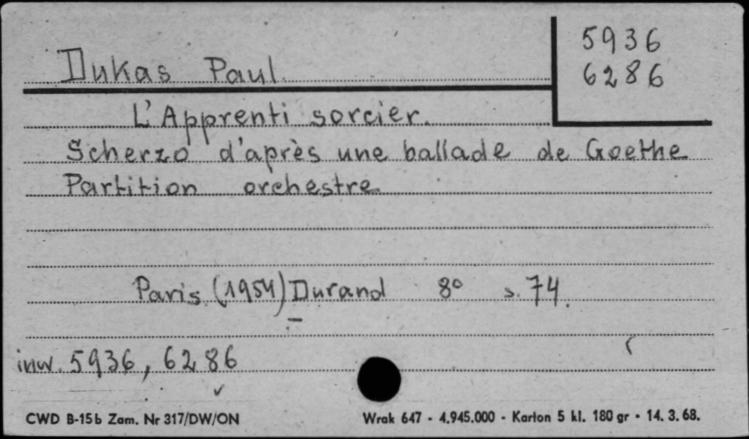 5936
6286
Dukas Paul
L'Apprenti sorcier.
Scherzo d'après une ballade de Goethe
Partition orchestre
Paris (1954) Durand 8° s. 74.
inw. 5936, 6286
CWD B-15b Zam. Nr 317/DW/ON Wrak 647 - 4.945.000 - Karton 5 kl. 180 gr - 14. 3. 68.